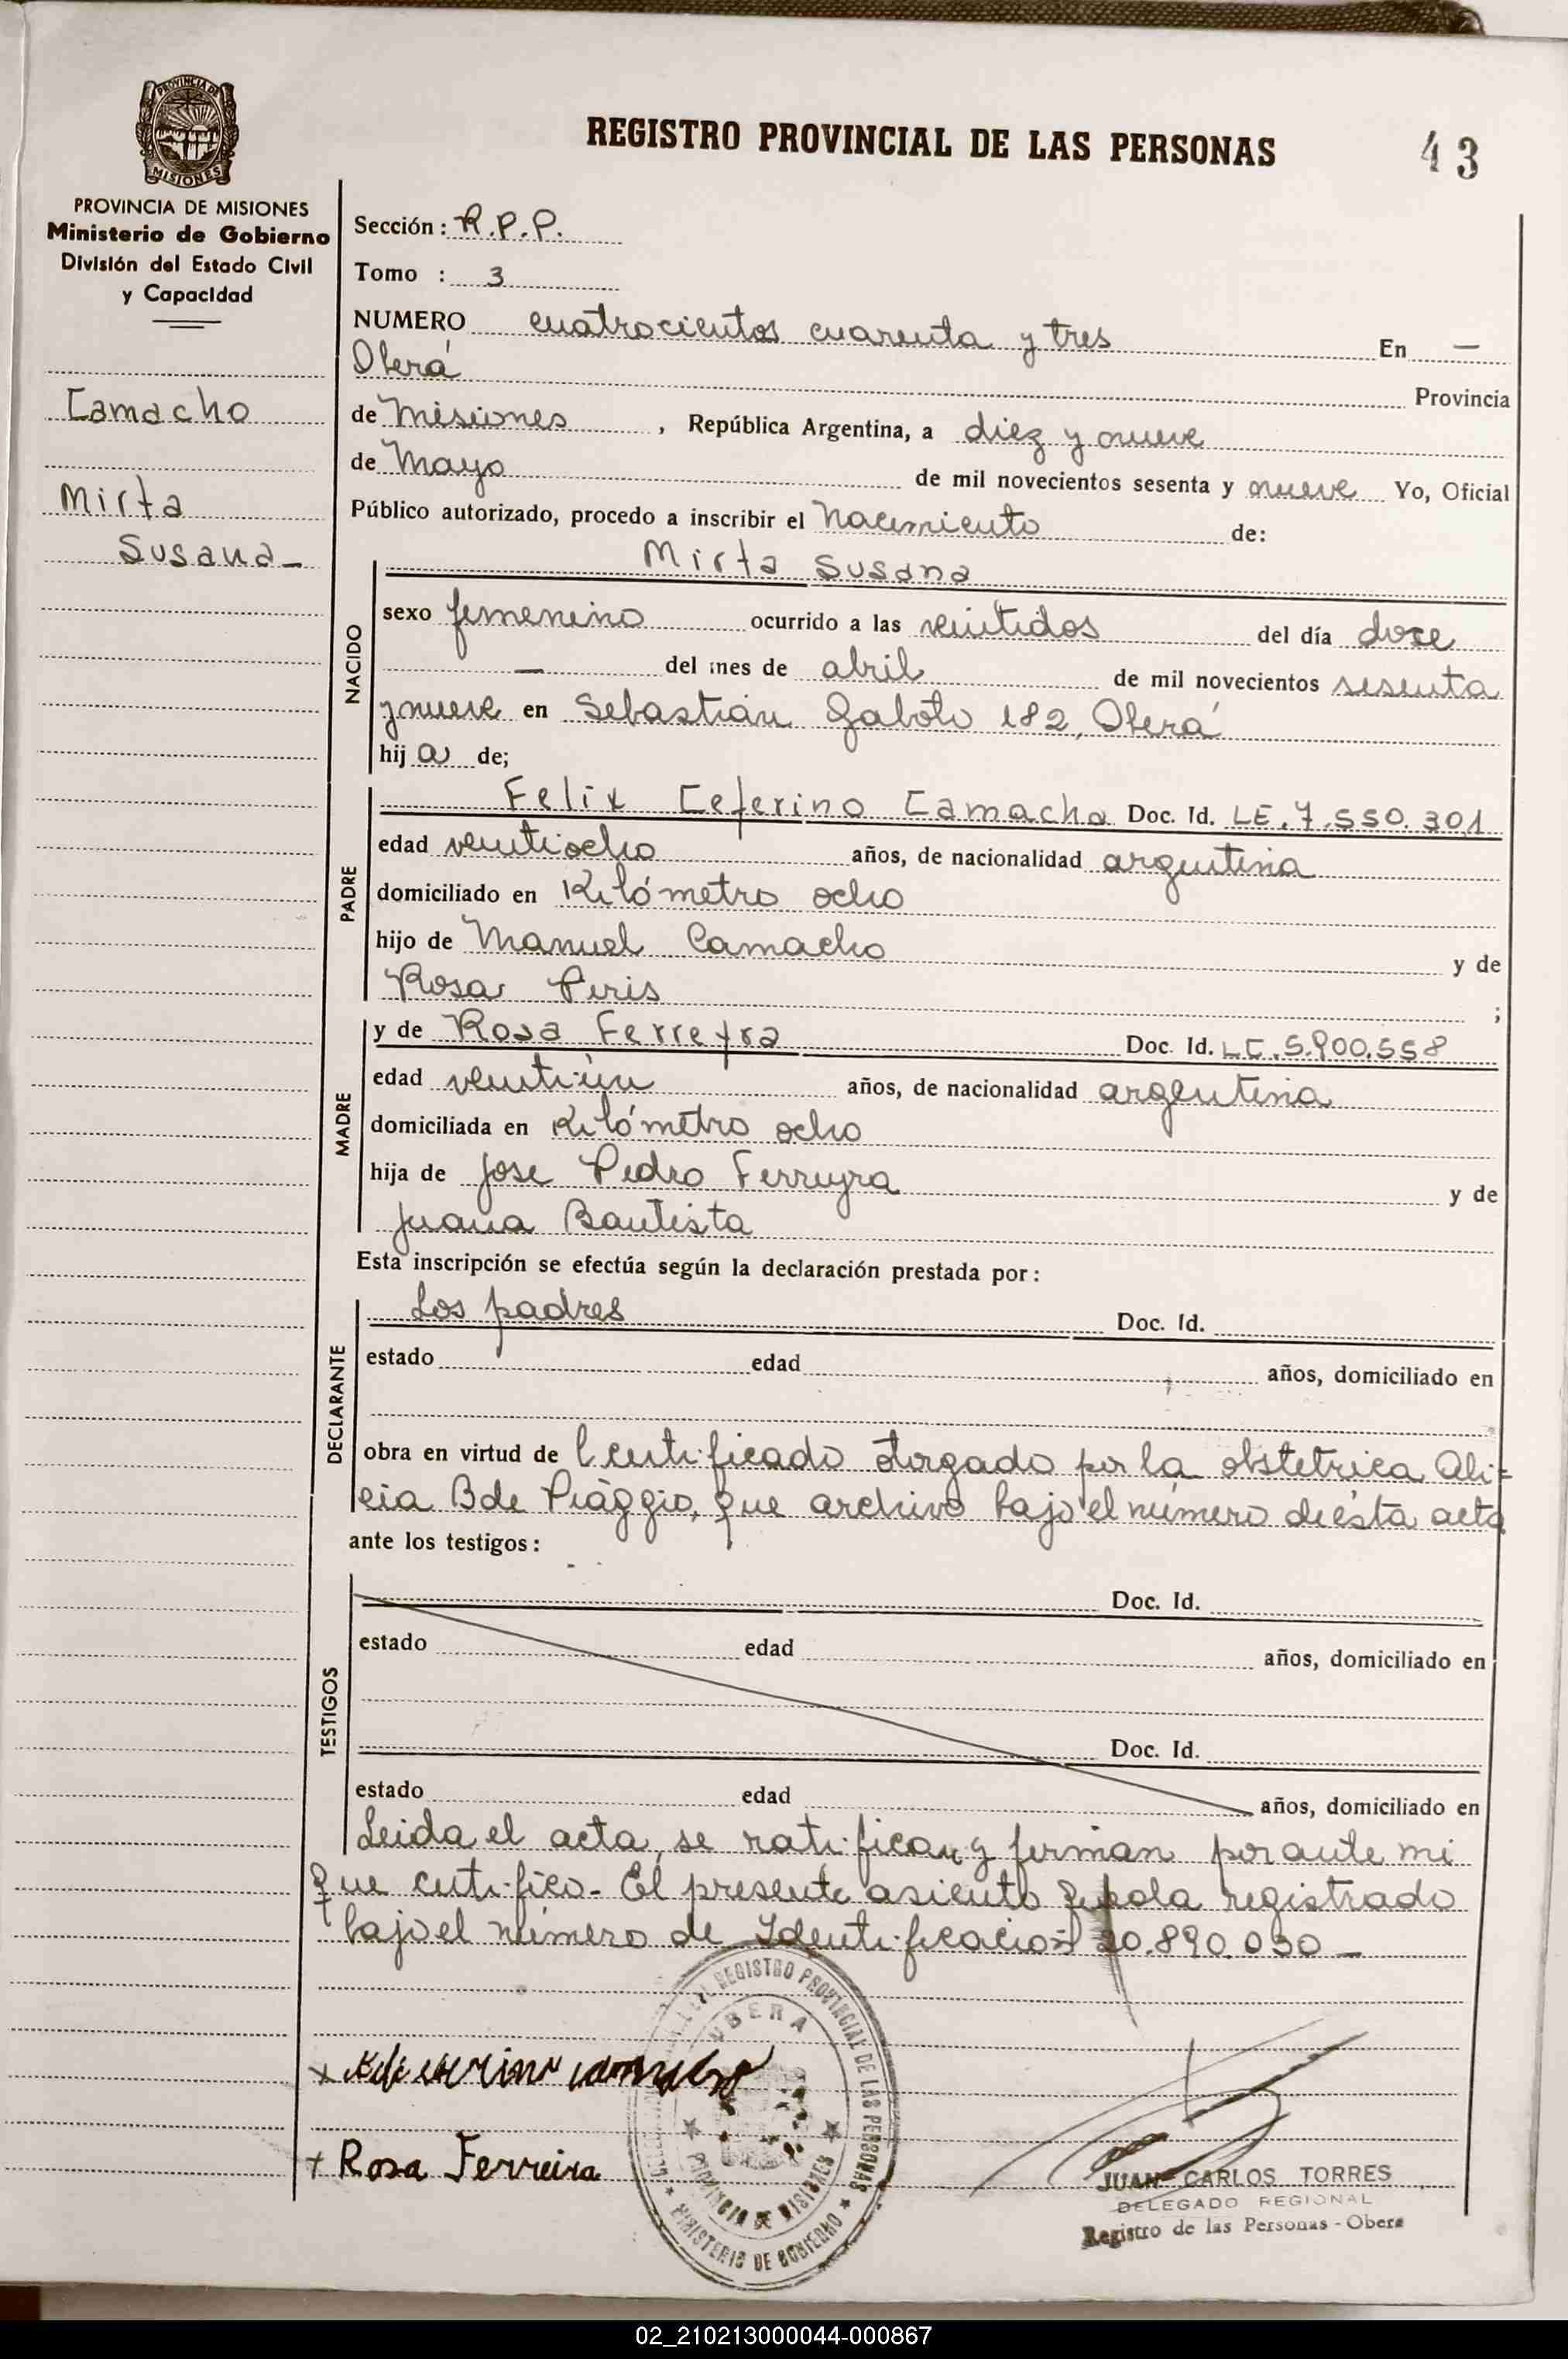 REGISTRO PROVINCIAL DE LAS PERSONAS
43
PROVINCIA DE MISIONES
PROVINCIA DE MISIONES
Ministerio de Gobierno
División del Estado Civil
y Capacidad
Camacho
Mirta
Susana-
Sección: R.P.P.
Tomo : 3
NUMERO cuatrocientos cuarenta y tres En —
Oberá Provincia
de Misiones, República Argentina, a diez y nueve
de Mayo de mil novecientos sesenta y nueve Yo, Oficial
Público autorizado, procedo a inscribir el Nacimiento de:
NACIDO
Mirta Susana
sexo femenino ocurrido a las veintidos del día doce
— del mes de abril de mil novecientos sesenta
y nueve en Sebastián Gaboto 182, Oberá
hija de;
PADRE
Felix Ceferino Camacho Doc. Id. LE.7.550.301
edad veintiocho años, de nacionalidad argentina
domiciliado en Kilómetro ocho
hijo de Manuel Camacho y de
Rosa Piris ;
MADRE
y de Rosa Ferreyra Doc. Id. LC.5.900.558
edad veintiún años, de nacionalidad argentina
domiciliada en Kilómetro ocho
hija de Jose Pedro Ferreyra y de
Juana Bautista
Esta inscripción se efectúa según la declaración prestada por:
DECLARANTE
Los padres Doc. Id.
estado edad años, domiciliado en
obra en virtud de l certificado otorgado por la obstetrica Ali=
cia B de Piággio, que archivo bajo el número de ésta acta
ante los testigos:
TESTIGOS
Doc. Id.
estado edad años, domiciliado en
Doc. Id.
estado edad años, domiciliado en
Leida el acta, se ratifican y firman por ante mi
que certifico- El presente asiento registrado
bajo el número de Identificación 20.890.030-
REGISTRO PROVINCIAL DE LAS PERSONAS
OBERA
PROVINCIA DE MISIONES
MINISTERIO DE GOBIERNO
+ Rosa Ferreira
JUAN CARLOS TORRES
DELEGADO REGIONAL
Registro de las Personas - Obera
02_210213000044-000867